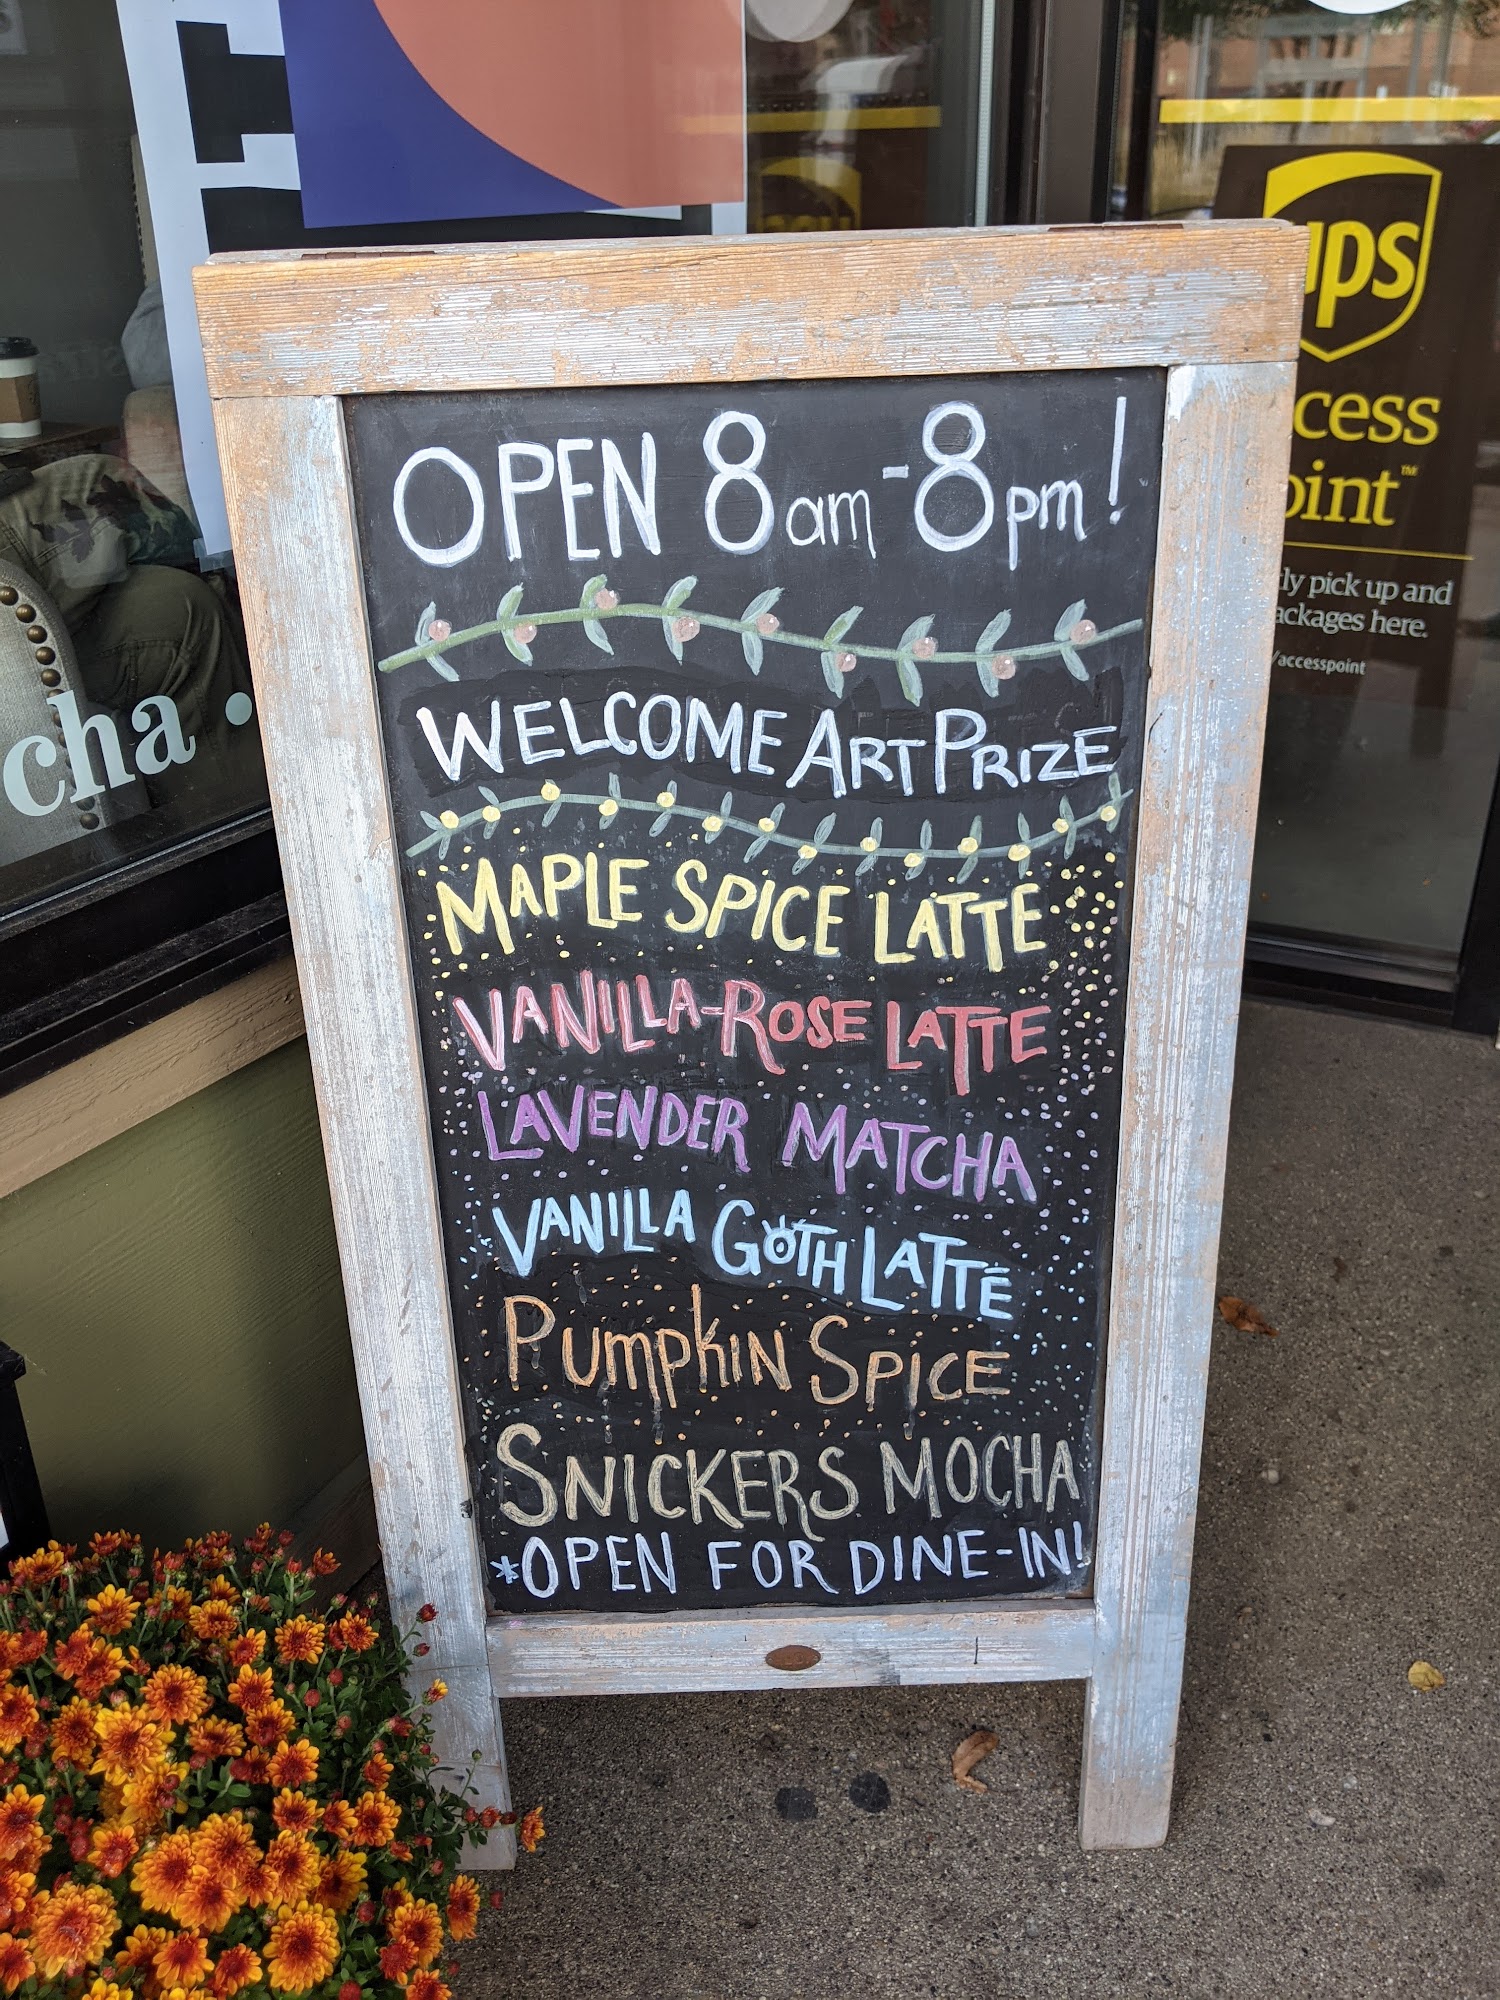 OPEN 8am-8pm!
WELCOME ARTPRIZE
MAPLE SPICE LATTE
VANILLA-ROSE LATTE
LAVENDER MATCHA
VANILLA GOTH LATTE
PUMPKIN SPICE
SNICKERS MOCHA
*OPEN FOR DINE-IN!
ups
cess
oint™
tly pick up and
ackages here.
/accesspoint
cha •